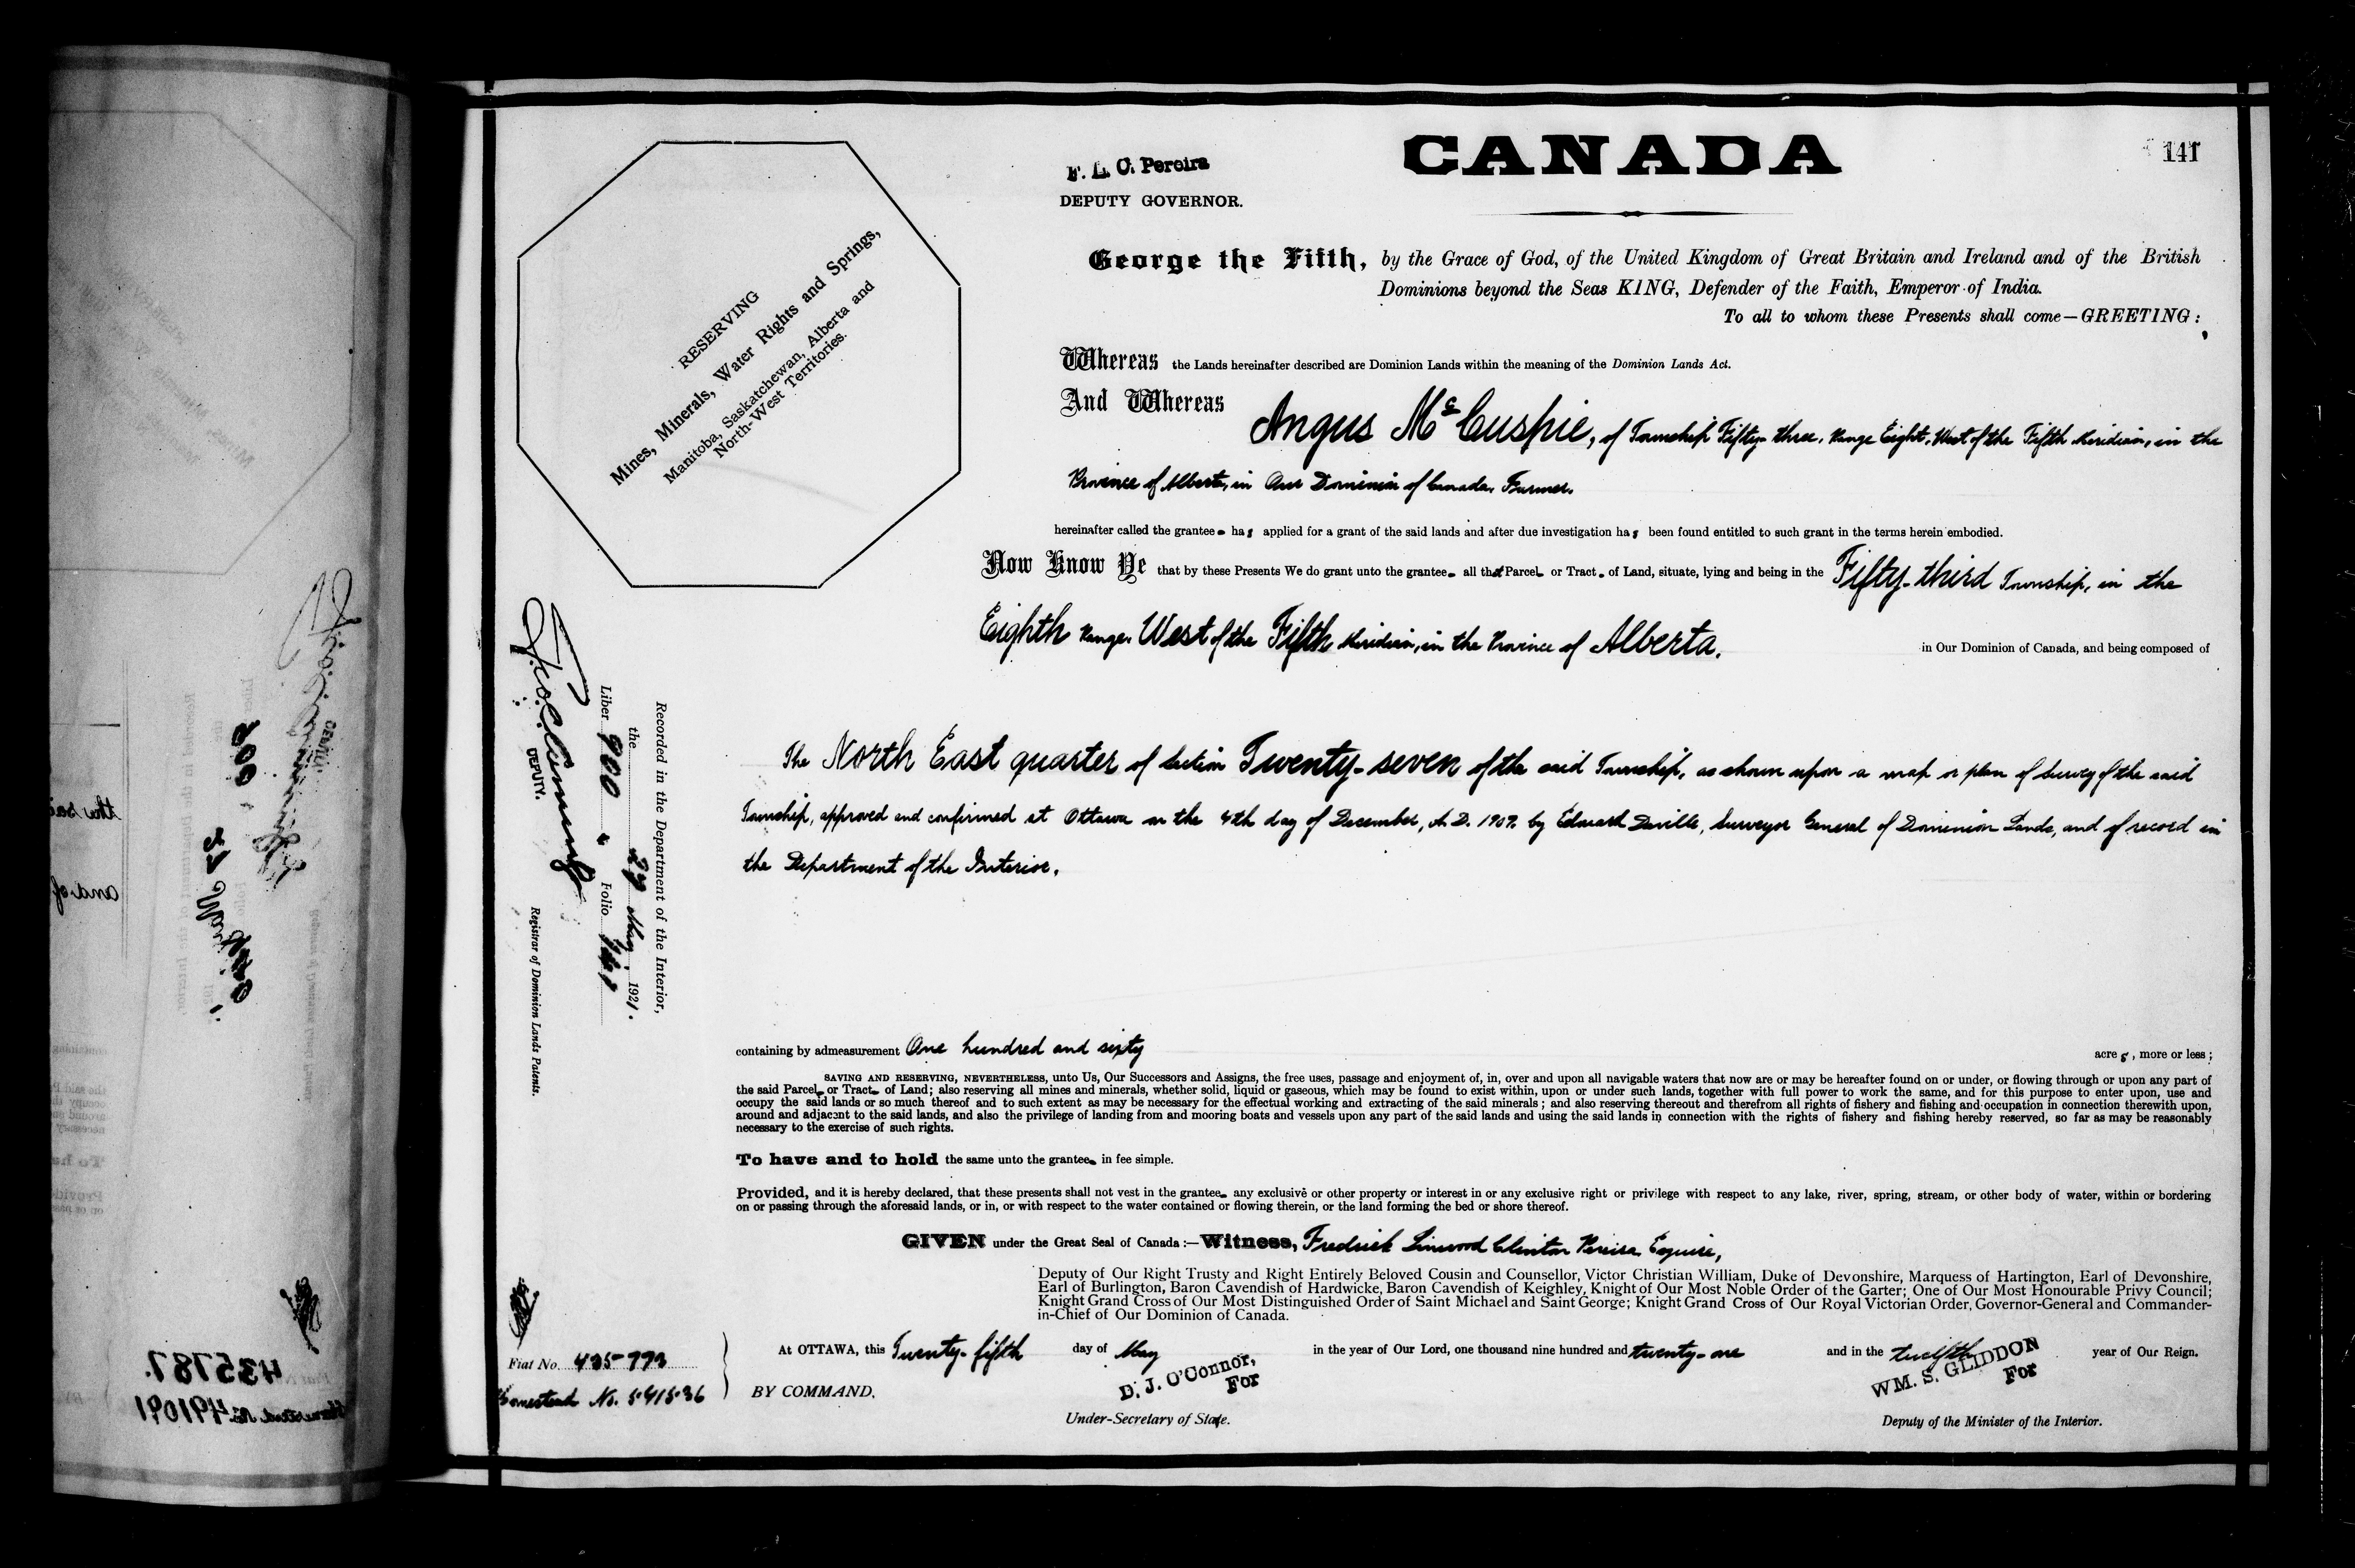 141
CANADA
F. L. C. Pereira
DEPUTY GOVERNOR.
RESERVING
Mines, Minerals, Water Rights and Springs,
Manitoba, Saskatchewan, Alberta and
North-West Territories.
George the Fifth, by the Grace of God, of the United Kingdom of Great Britain and Ireland and of the British
Dominions beyond the Seas KING, Defender of the Faith, Emperor of India.
To all to whom these Presents shall come—GREETING:
Whereas the Lands hereinafter described are Dominion Lands within the meaning of the Dominion Lands Act.
And Whereas Angus McCuspie, of Township Fifty-three, Range Eight, West of the Fifth Meridian, in the
Province of Alberta, in Our Dominion of Canada, Farmer,
hereinafter called the grantee has applied for a grant of the said lands and after due investigation has been found entitled to such grant in the terms herein embodied.
Now Know Ye that by these Presents We do grant unto the grantee all that Parcel or Tract of Land, situate, lying and being in the Fifty-third Township, in the
Eighth Range, West of the Fifth Meridian, in the Province of Alberta, in Our Dominion of Canada, and being composed of
The North East quarter of Section Twenty-seven of the said Township, as shown upon a map or plan of Survey of the said
Township, approved and confirmed at Ottawa on the 4th day of December, A.D. 1909, by Edward Deville, Surveyor General of Dominion Lands, and of record in
the Department of the Interior.
Recorded in the Department of the Interior,
the 27 May, 1921.
Liber 900 Folio 141
DEPUTY.
Registrar of Dominion Lands Patents.
containing by admeasurement One hundred and sixty acres, more or less;
SAVING AND RESERVING, NEVERTHELESS, unto Us, Our Successors and Assigns, the free uses, passage and enjoyment of, in, over and upon all navigable waters that now are or may be hereafter found on or under, or flowing through or upon any part of
the said Parcel or Tract of Land; also reserving all mines and minerals, whether solid, liquid or gaseous, which may be found to exist within, upon or under such lands, together with full power to work the same, and for this purpose to enter upon, use and
occupy the said lands or so much thereof and to such extent as may be necessary for the effectual working and extracting of the said minerals; and also reserving thereout and therefrom all rights of fishery and fishing and occupation in connection therewith upon,
around and adjacent to the said lands, and also the privilege of landing from and mooring boats and vessels upon any part of the said lands and using the said lands in connection with the rights of fishery and fishing hereby reserved, so far as may be reasonably
necessary to the exercise of such rights.
To have and to hold the same unto the grantee in fee simple.
Provided, and it is hereby declared, that these presents shall not vest in the grantee any exclusive or other property or interest in or any exclusive right or privilege with respect to any lake, river, spring, stream, or other body of water, within or bordering
on or passing through the aforesaid lands, or in, or with respect to the water contained or flowing therein, or the land forming the bed or shore thereof.
GIVEN under the Great Seal of Canada:—Witness, Fredrick Linwood Clinton Pereira, Esquire,
Deputy of Our Right Trusty and Right Entirely Beloved Cousin and Counsellor, Victor Christian William, Duke of Devonshire, Marquess of Hartington, Earl of Devonshire,
Earl of Burlington, Baron Cavendish of Hardwicke, Baron Cavendish of Keighley, Knight of Our Most Noble Order of the Garter; One of Our Most Honourable Privy Council;
Knight Grand Cross of Our Most Distinguished Order of Saint Michael and Saint George; Knight Grand Cross of Our Royal Victorian Order, Governor-General and Commander-
in-Chief of Our Dominion of Canada.
At OTTAWA, this Twenty-fifth day of May in the year of Our Lord, one thousand nine hundred and twenty-one and in the twelfth year of Our Reign.
BY COMMAND,
D. J. O'Connor,
For
Under-Secretary of State.
WM. S. GLIDDON
For
Deputy of the Minister of the Interior.
Fiat No. 435773
Homestead No. 541536
435787.
Homestead No. 491091